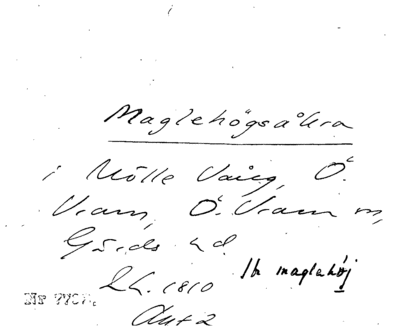 Maglehögsåkra
i Mölle Vång, Ö.
Vram, Ö. Vram sn,
Gärds hd.
Lh. 1810
Ib maglehøj
Akt 2
Nr